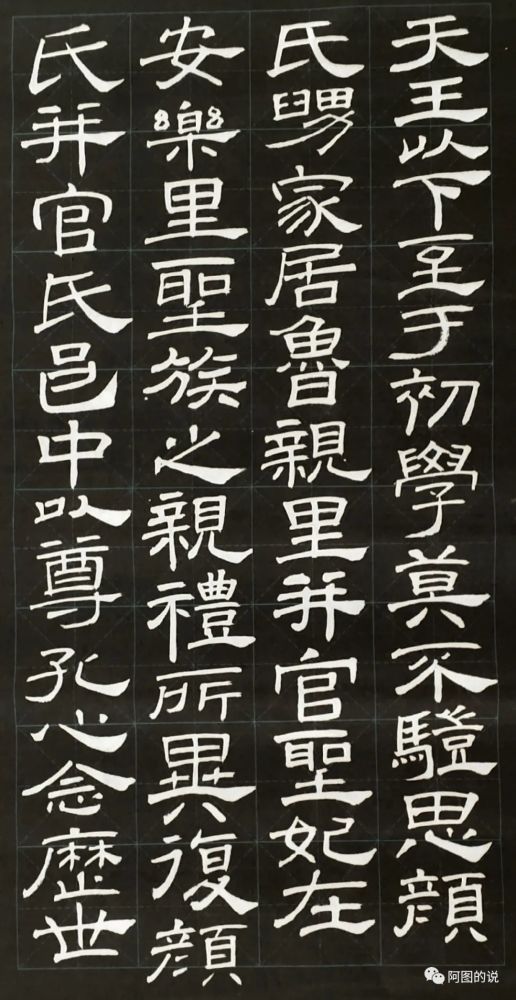 天王以下至于初學莫不驥思顏
氏舅家居魯親里并官聖妃在
安樂里聖族之親禮所異復顏
氏并官氏邑中以尊孔心念歷世
阿图的说